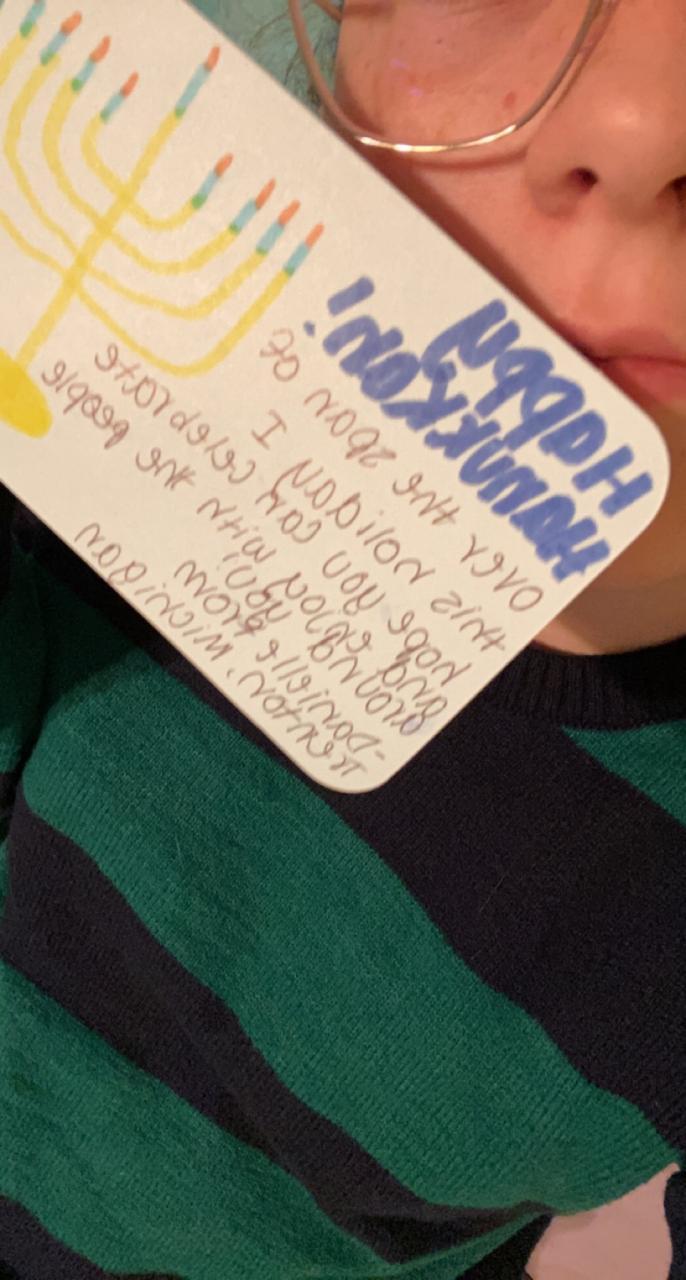 Happy
Hanukkah!
over the span of
this holiday I
hope you can celebrate
and enjoy with the people
around you
-Danielle from
Trenton, Michigan